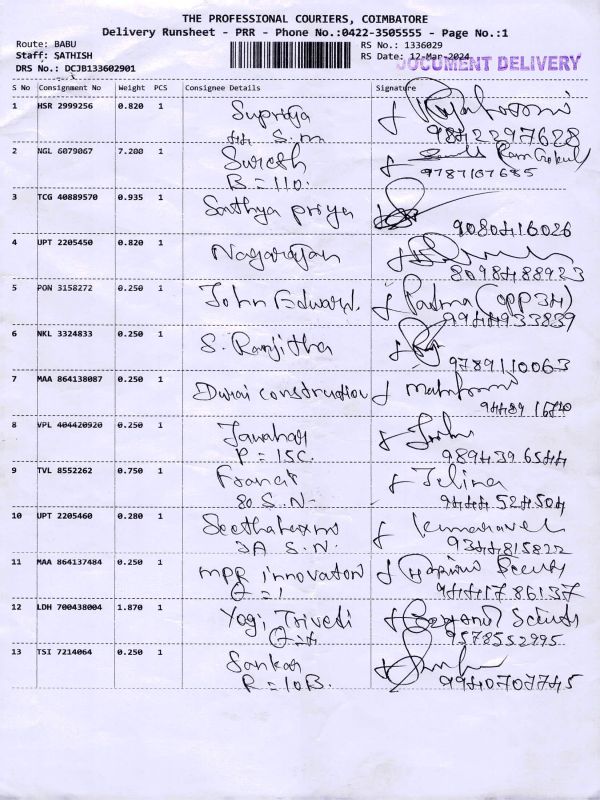 THE PROFESSIONAL COURIERS, COIMBATORE
Delivery Runsheet - PRR - Phone No.:0422-3505555 - Page No.:1
Route: BABU
Staff: SATHISH
DRS No.: DCJB133602901
RS No.: 1336029
RS Date: 12-Mar-2024
DOCUMENT DELIVERY
S No Consignment No Weight PCS Consignee Details Signature
1 HSR 2999256 0.820 1 Supriya
S.M
9842297628
2 NGL 6079067 7.200 1 Suresh
B = 110.
9787107685
3 TCG 40889570 0.935 1 Sathya priya
9080416026
4 UPT 2205450 0.820 1 Nagarajan
8098488923
5 PON 3158272 0.250 1 John Edward. Padma (opp 34)
9944933839
6 NKL 3324833 0.250 1 S. Ranjitha
9789110063
7 MAA 864138087 0.250 1 Durai construction
8 VPL 404420920 0.250 1 Jawahar
P = 15C.
9894396544
9 TVL 8552262 0.750 1 Francis Jelina
80 S.N-
9444524504
10 UPT 2205460 0.280 1 Kumaravel
3A S.N.
9344815822
11 MAA 864137484 0.250 1 MPR innovation
Q = 1
9441786137
12 LDH 700438004 1.870 1 Yogi Trivedi
Q = 4
9578552995
13 TSI 7214064 0.250 1 Sankar
R = 10B.
9940707745